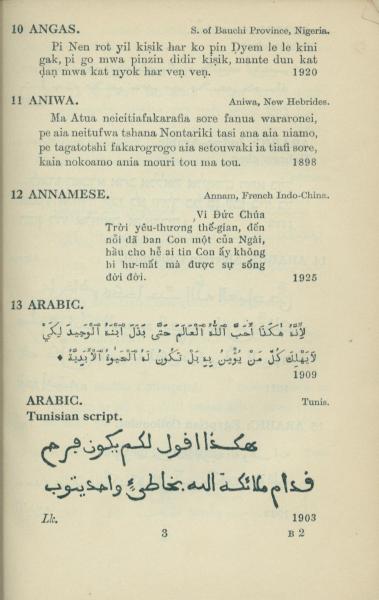 10 ANGAS. S. of Bauchi Province, Nigeria.
Pi Nen rot yil kiṣik har ko pin Ḍyem le le kini
gak, pi go mwa pinzin didir kiṣik, mante dun kat
ḍaṇ mwa kat nyok har veṇ veṇ. 1920
11 ANIWA. Aniwa, New Hebrides.
Ma Atua neicitiafakarafia sore fanua wararonei,
pe aia neitufwa tshana Nontariki tasi ana aia niamo,
pe tagatotshi fakarogrogo aia setouwaki ia tiafi sore,
kaia nokoamo ania mouri tou ma tou. 1898
12 ANNAMESE. Annam, French Indo-China.
Vì Đức Chúa
Trời yêu-thương thế-gian, đến
nỗi đã ban Con một của Ngài,
hầu cho hễ ai tin Con ấy không
bị hư-mất mà được sự sống
đời đời. 1925
13 ARABIC.
لِأَنَّهُ هٰكَذَا أَحَبَّ ٱللّٰهُ ٱلْعَالَمَ حَتَّى بَذَلَ ٱبْنَهُ ٱلْوَحِيدَ لِكَيْ
لَا يَهْلِكَ كُلُّ مَنْ يُؤْمِنُ بِهِ بَلْ تَكُونُ لَهُ ٱلْحَيٰوةُ ٱلْأَبَدِيَّةُ ◆
1909
ARABIC. Tunis.
Tunisian script.
هكذا اقول لكم يكون فرح
قدام ملائكة الله بخاطئ واحد يتوب
Lk. 1903
3 B 2